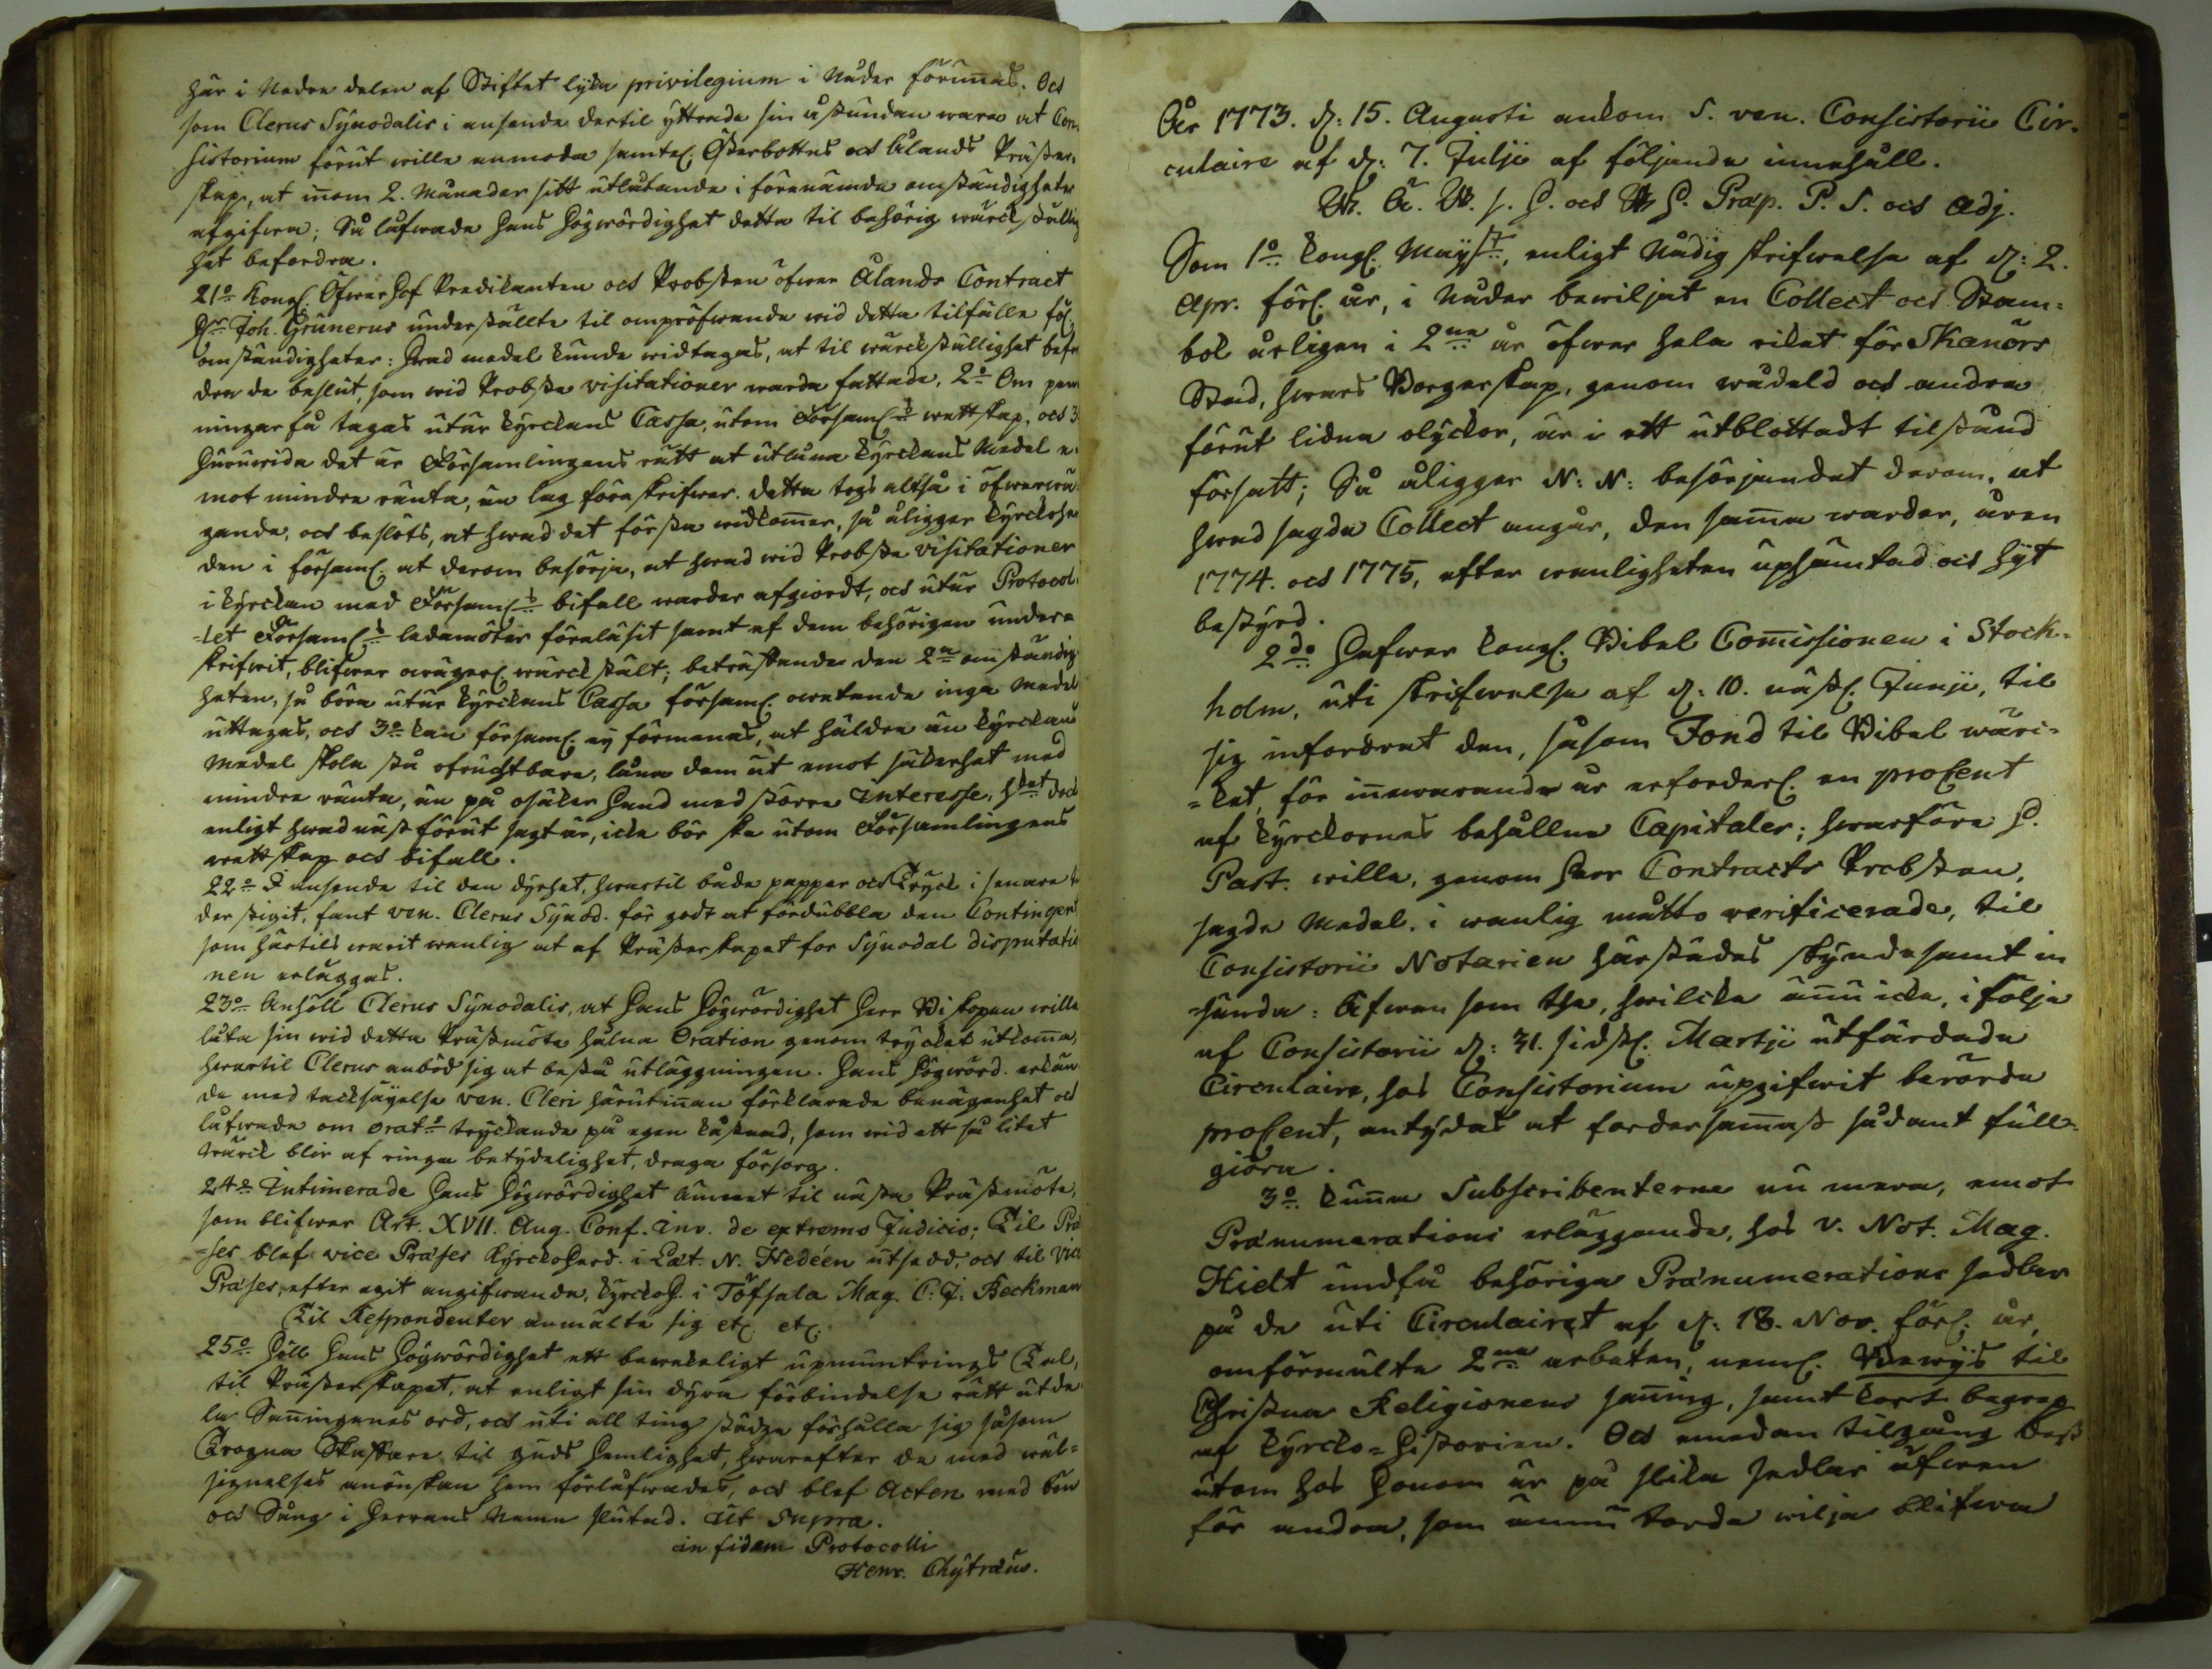 här i Nedre delen af Stiftet lyka privilegium i Nåder förunnas. Och
som Clerus Synodalis i anseende dertil yttrade sin åstundan wara at Con-
sistorium förut wille anmoda samtel. Österbottns och Ålands Präster-
skap, at innom 2. Månader sitt utlåtande i förenämde omständigheter
afgifwa; Så låfwade Hans Högwördighet detta til behörig wärckställig
het befordra.
21o Kongl. Öfwer Hof Predikanten och Probsten öfwer Ålands Contract
Hr Joh. Grunerus understälte til ompröfwande wid detta tilfälle föl.
omständigheter: Hwad medel kunde widtagas, at til wärckställighet befor
dra de beslut, som wid Probste visitationer warda fattade, 2o Om pen
ningar få tagas utur kyrckans Cassa, utom Församls wettskap, och 3
huruwida det är Församlingens rätt at utlåna kyrckans Medel e-
mot mindre ränta, än lag föreskrifwer. Detta togs altså i öfwerwä-
gande, och beslöts, at hwad det första widkommer, så åligger kyrckohe
den i församl. at derom besörja, at hwad wid Probste visitationer
i kyrckan med Församls bifall warder afgiordt, och utur Protocol-
let Församls ledamöter föreläsit samt af dem behörigen under-
skrifwit, blifwer owägerl. wärckstält; beträffande den 2a omständig
heten, så böra utur kyrckans Cassa församl. owetande inga medel
uttagas, och 3o kan församl. ej förmenas, at hälldre än kyrckans
Medel skola stå ofruchtbara, låna dem ut emot säkerhet med
mindre ränta, än på osäker hand med större Interesse, hket doch
enligt hwad näst förut sagt är, icke bör ske utom Församlingens
wettskap och bifall.
22o I anseende til den dyrhet, hwartil både papper och Tryck i senare ti
der stigit, fant ven. Clerus Synod. för godt at fördubbla den Contingent
som härtils warit wanlig at af Prästerskapet for Synodal disputatio
nen erläggas.
23o Anhöll Clerus Synodalis, at Hans Högwördighet Herr Biskopen wille
låta sin wid detta Prästmöte hålna Oration genom trycket utkomma,
hwartil Clerus anböd sig at bestå utläggningen. Hans Högwörd. erkän
de med tacksäyelse ven. Cleri härutinnan förklarade benägenhet och
låfwade om orats tryckande på egen kåstnad, som wid ett så litet
wärck blir af ringa betydelighet, draga försorg.
24o Intimerade Hans Högwördighet ämnet til nästa Prästmöte,
som blifwer Art. XVII. Aug. Conf. Inv. de extremo Judicio; Til Præ
-ses blef vice Præses Kyrckoherd. i Lät. N. Hedéen utsedd, och til vice
Præses, efter egit angifwande, kyrckoh. i Töfsala Mag. C: J: Beckman
Til Respondenter anmälte sig etc. etc.
25o Höll Hans Högwördighet ett bewekeligt upmuntrings Tal,
til Prästerskapet, at enligt sin dyra förbindelse rätt utde
la Sanningenes ord, och uti all ting städse förhålla sig såsom
Trogna Skaffare til Guds hemlighet, hwarefter de med wäl-
signelses anönskan hem förlåfwades, och blef Acten med bön
och Sång i Herrans Namn slutad. Ut supra.
in fidem Protocolli
Henr. Chytræus.
År 1773. d: 15. Augusti ankom S. ven. Consistorii Cir-
culaire af d: 7. Julji af följande innehåll.
W. Ä. W. s. H. och W H. Præp. P. S. och Adj.
Som 1o Kongl. Mayst, enligt Nådig skrifwelse af d: 2.
Apr. förl. år, i Nåder bewiljat en Collect och Stam-
bok årligen i 2ne år öfwer hela riket för Skanörs
Stad, hwars Borgerskap, genom wådeld och andra
förut lidna olyckor, är i ett utblottadt tilstånd
försatt; Så åligger N: N: besörjandet derom, at
hwad sagde Collect angår, den samma warder, åren
1774. och 1775, efter wanligheten uphämtad och hyt
bestyrd.
2do Hafwer Kongl. Bibel Commissionen i Stock-
holm, uti skrifwelse af d: 10. nästl. Junji, til
sig infordrat den, såsom Fond til Bibel wäri-
-ket, för innewarande år erforderl. en proCent
af kyrckornas behållna Capitaler; hwarföre H.
Past. wille, genom Herr Contracts Probsten,
sagde Medel, i wanlig måtto verificerade, til
Consistorii Notarien härstädes skyndesamt in
sända: Äfwen som the, hwilcka ännu icke, i följe
af Consistorii d: 31. sidstl. Martji utfärdade
Circulaire, hos Consistorium upgifwit berörde
proCent, antydas at fordersammast sådant full-
giöra.
3o kunna Subscribenterne nu mera, emot
Prænumerations erläggande, hos v. Not. Mag.
Hielt undfå behöriga Prænumerations sedlar
på de uti Circulairet af d: 18. Nov. förl. år,
omförmälte 2ne arbeten, neml. Bewijs til
Christna Religionens sanning, samt kort begrep
af kyrcko-Historien. Och emedan tilgång dess
utom hos Honom är på slika sedlar äfwen
för andra, som ännu torde wilja blifwa